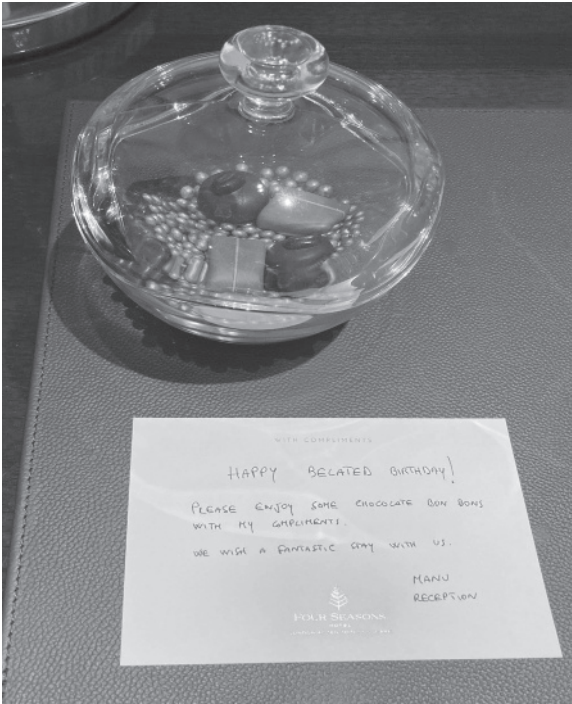 WITH COMPLIMENTS
HAPPY BELATED BIRTHDAY!
PLEASE ENJOY SOME CHOCOLATE BON BONS
WITH MY COMPLIMENTS.
WE WISH A FANTASTIC STAY WITH US.
MANU
RECEPTION
FOUR SEASONS
HOTEL